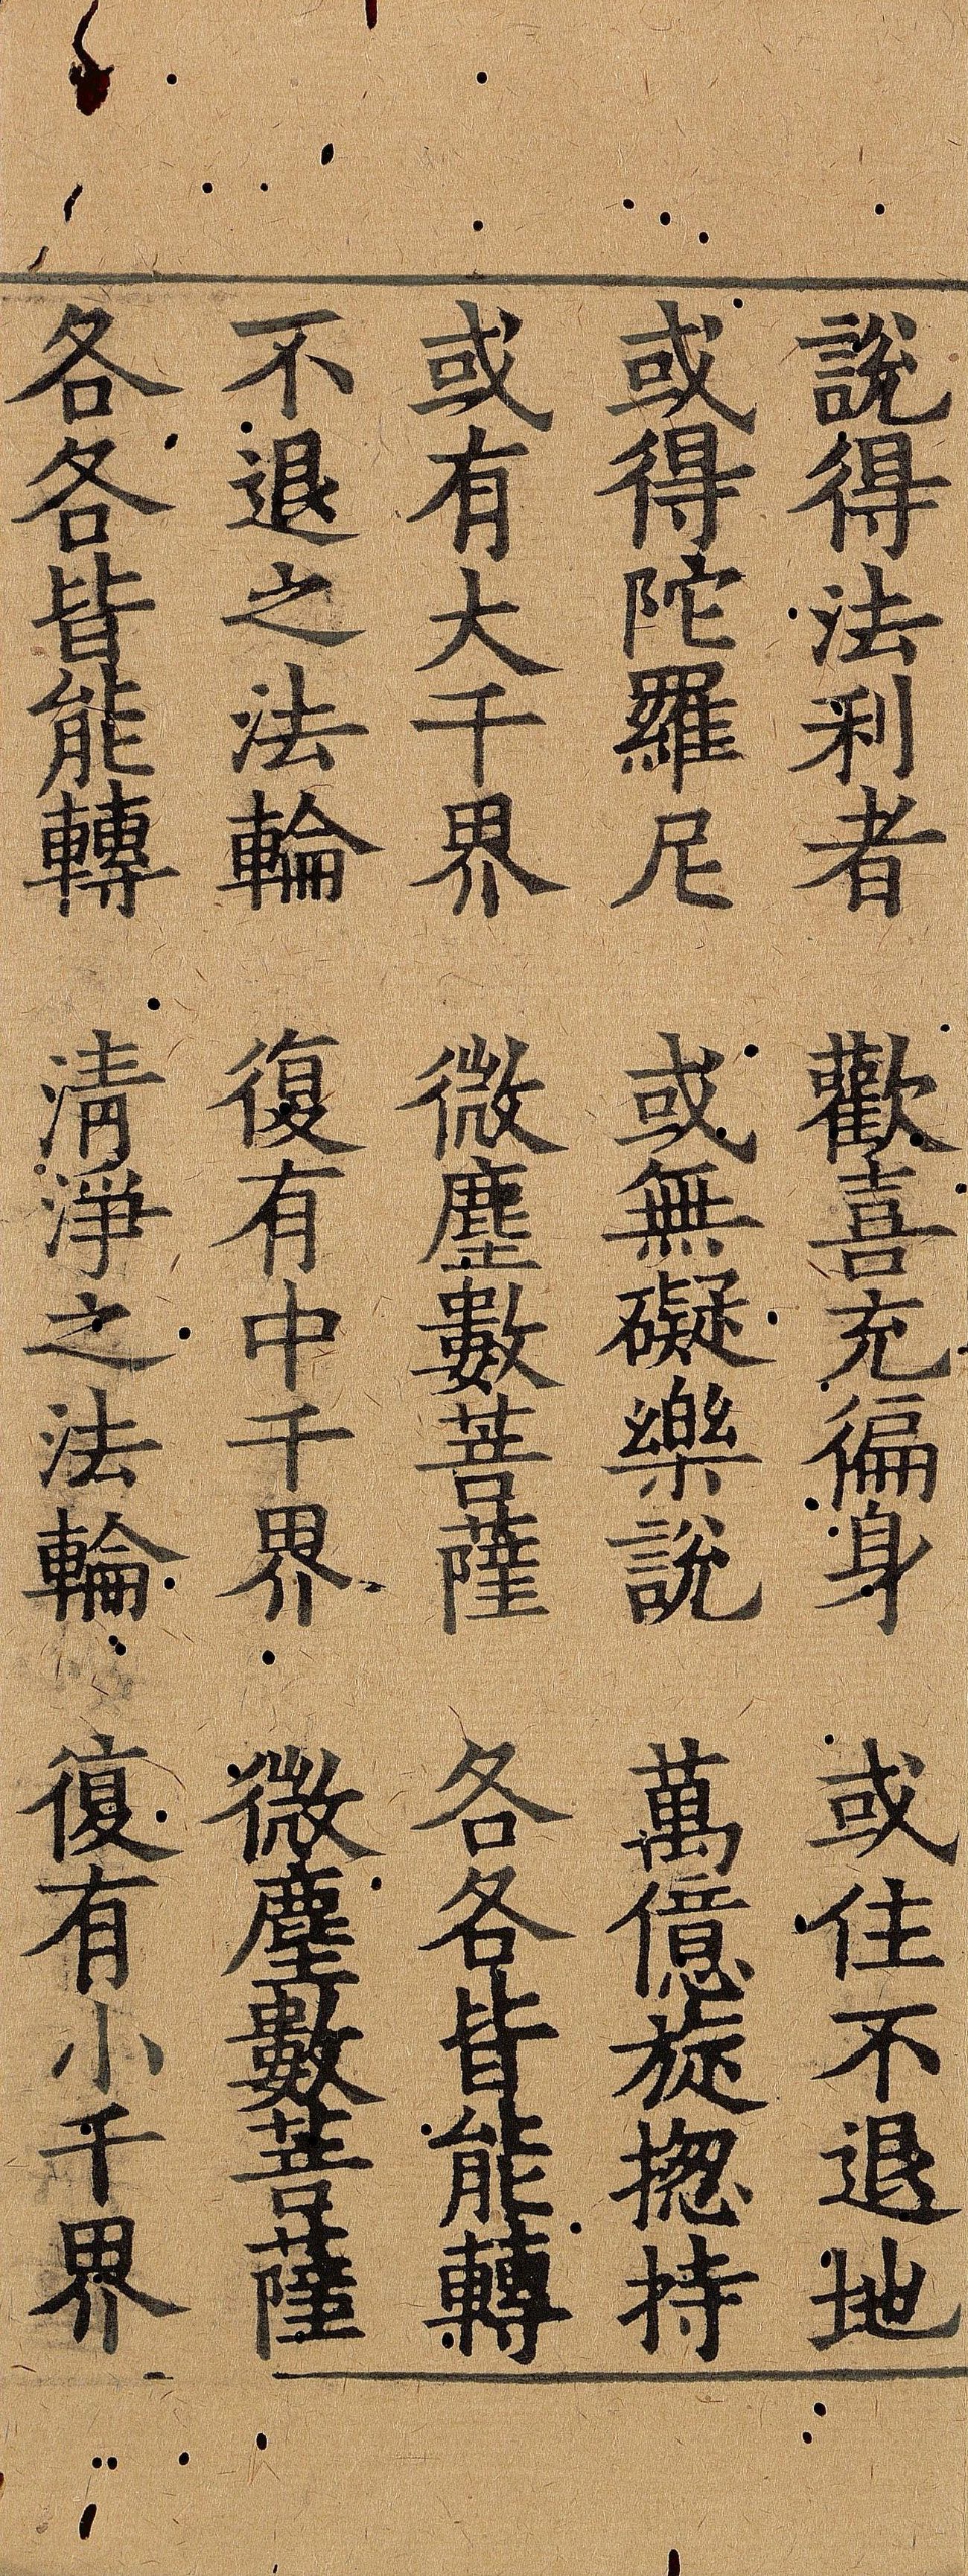 說得法利者　歡喜充徧身　或住不退地
或得陀羅尼　或無礙樂說　萬億旋揔持
或有大千界　微塵數菩薩　各各皆能轉
不退之法輪　復有中千界　微塵數菩薩
各各皆能轉　清淨之法輪　復有小千界